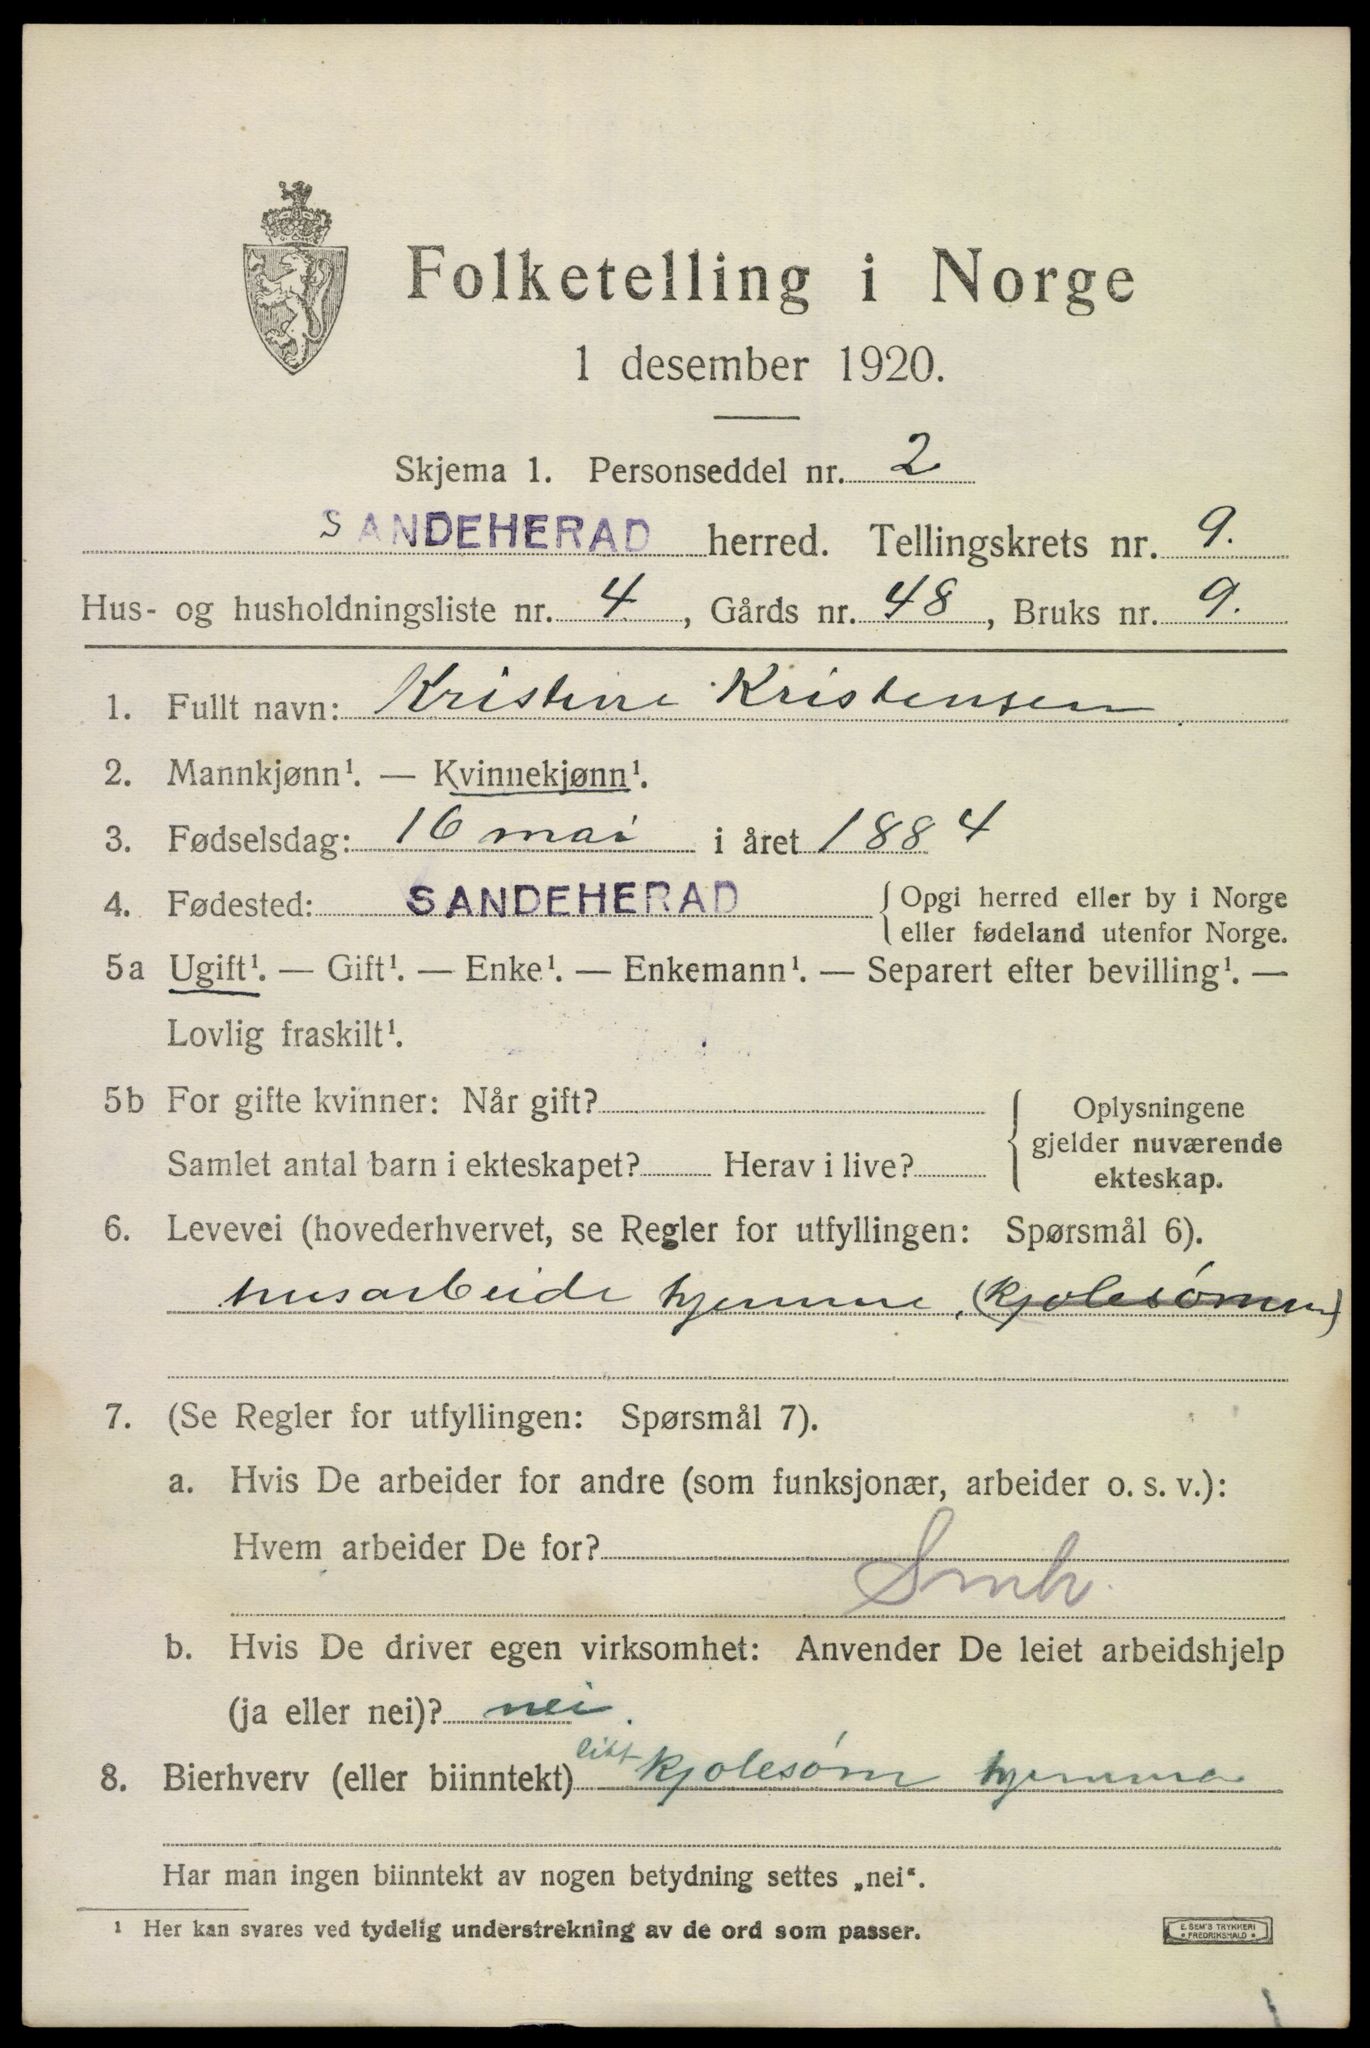 Folketelling i Norge
1 desember 1920.
Skjema 1. Personseddel nr. 2
SANDEHERAD herred. Tellingskrets nr. 9.
Hus- og husholdningsliste nr. 4, Gårds nr. 48, Bruks nr. 9.
1. Fullt navn: Kristine Kristensen
2. Mannkjønn¹. — Kvinnekjønn¹.
3. Fødselsdag: 16 mai i året 1884
4. Fødested: SANDEHERAD { Opgi herred eller by i Norge
eller fødeland utenfor Norge.
5a Ugift¹. — Gift¹. — Enke¹. — Enkemann¹. — Separert efter bevilling¹. —
Lovlig fraskilt¹.
5b For gifte kvinner: Når gift?
Samlet antal barn i ekteskapet? Herav i live?
{ Oplysningene
gjelder nuværende
ekteskap.
6. Levevei (hovederhvervet, se Regler for utfyllingen: Spørsmål 6).
husarbeide hjemme, (kjolesømm)
7. (Se Regler for utfyllingen: Spørsmål 7).
a. Hvis De arbeider for andre (som funksjonær, arbeider o. s. v.):
Hvem arbeider De for?
b. Hvis De driver egen virksomhet: Anvender De leiet arbeidshjelp
(ja eller nei)? nei.
8. Bierhverv (eller biinntekt) litt kjolesøm hjemme
Har man ingen biinntekt av nogen betydning settes „nei“.
¹ Her kan svares ved tydelig understrekning av de ord som passer.
E. SEM'S TRYKKERI
FREDRIKSHALD